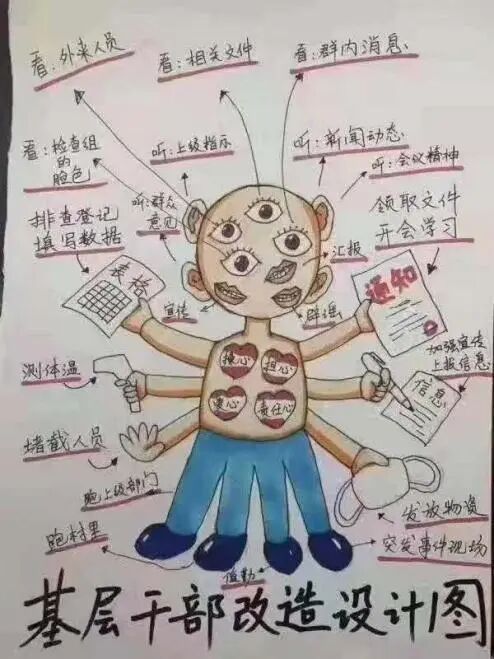 看:外来人员
看:相关文件
看:群内消息
看:检查组
的
脸色
听:上级指示
听:新闻动态
听:会议精神
听:群众
意见
排查登记
填写数据
领取文件
开会学习
汇报
宣传
辟谣
表格
通知
测体温
加强宣传
上报信息
信息
担心
衷心
责任心
堵截人员
跑上级部门
发放物资
跑村里
值勤
突发事件现场
基层干部改造设计图